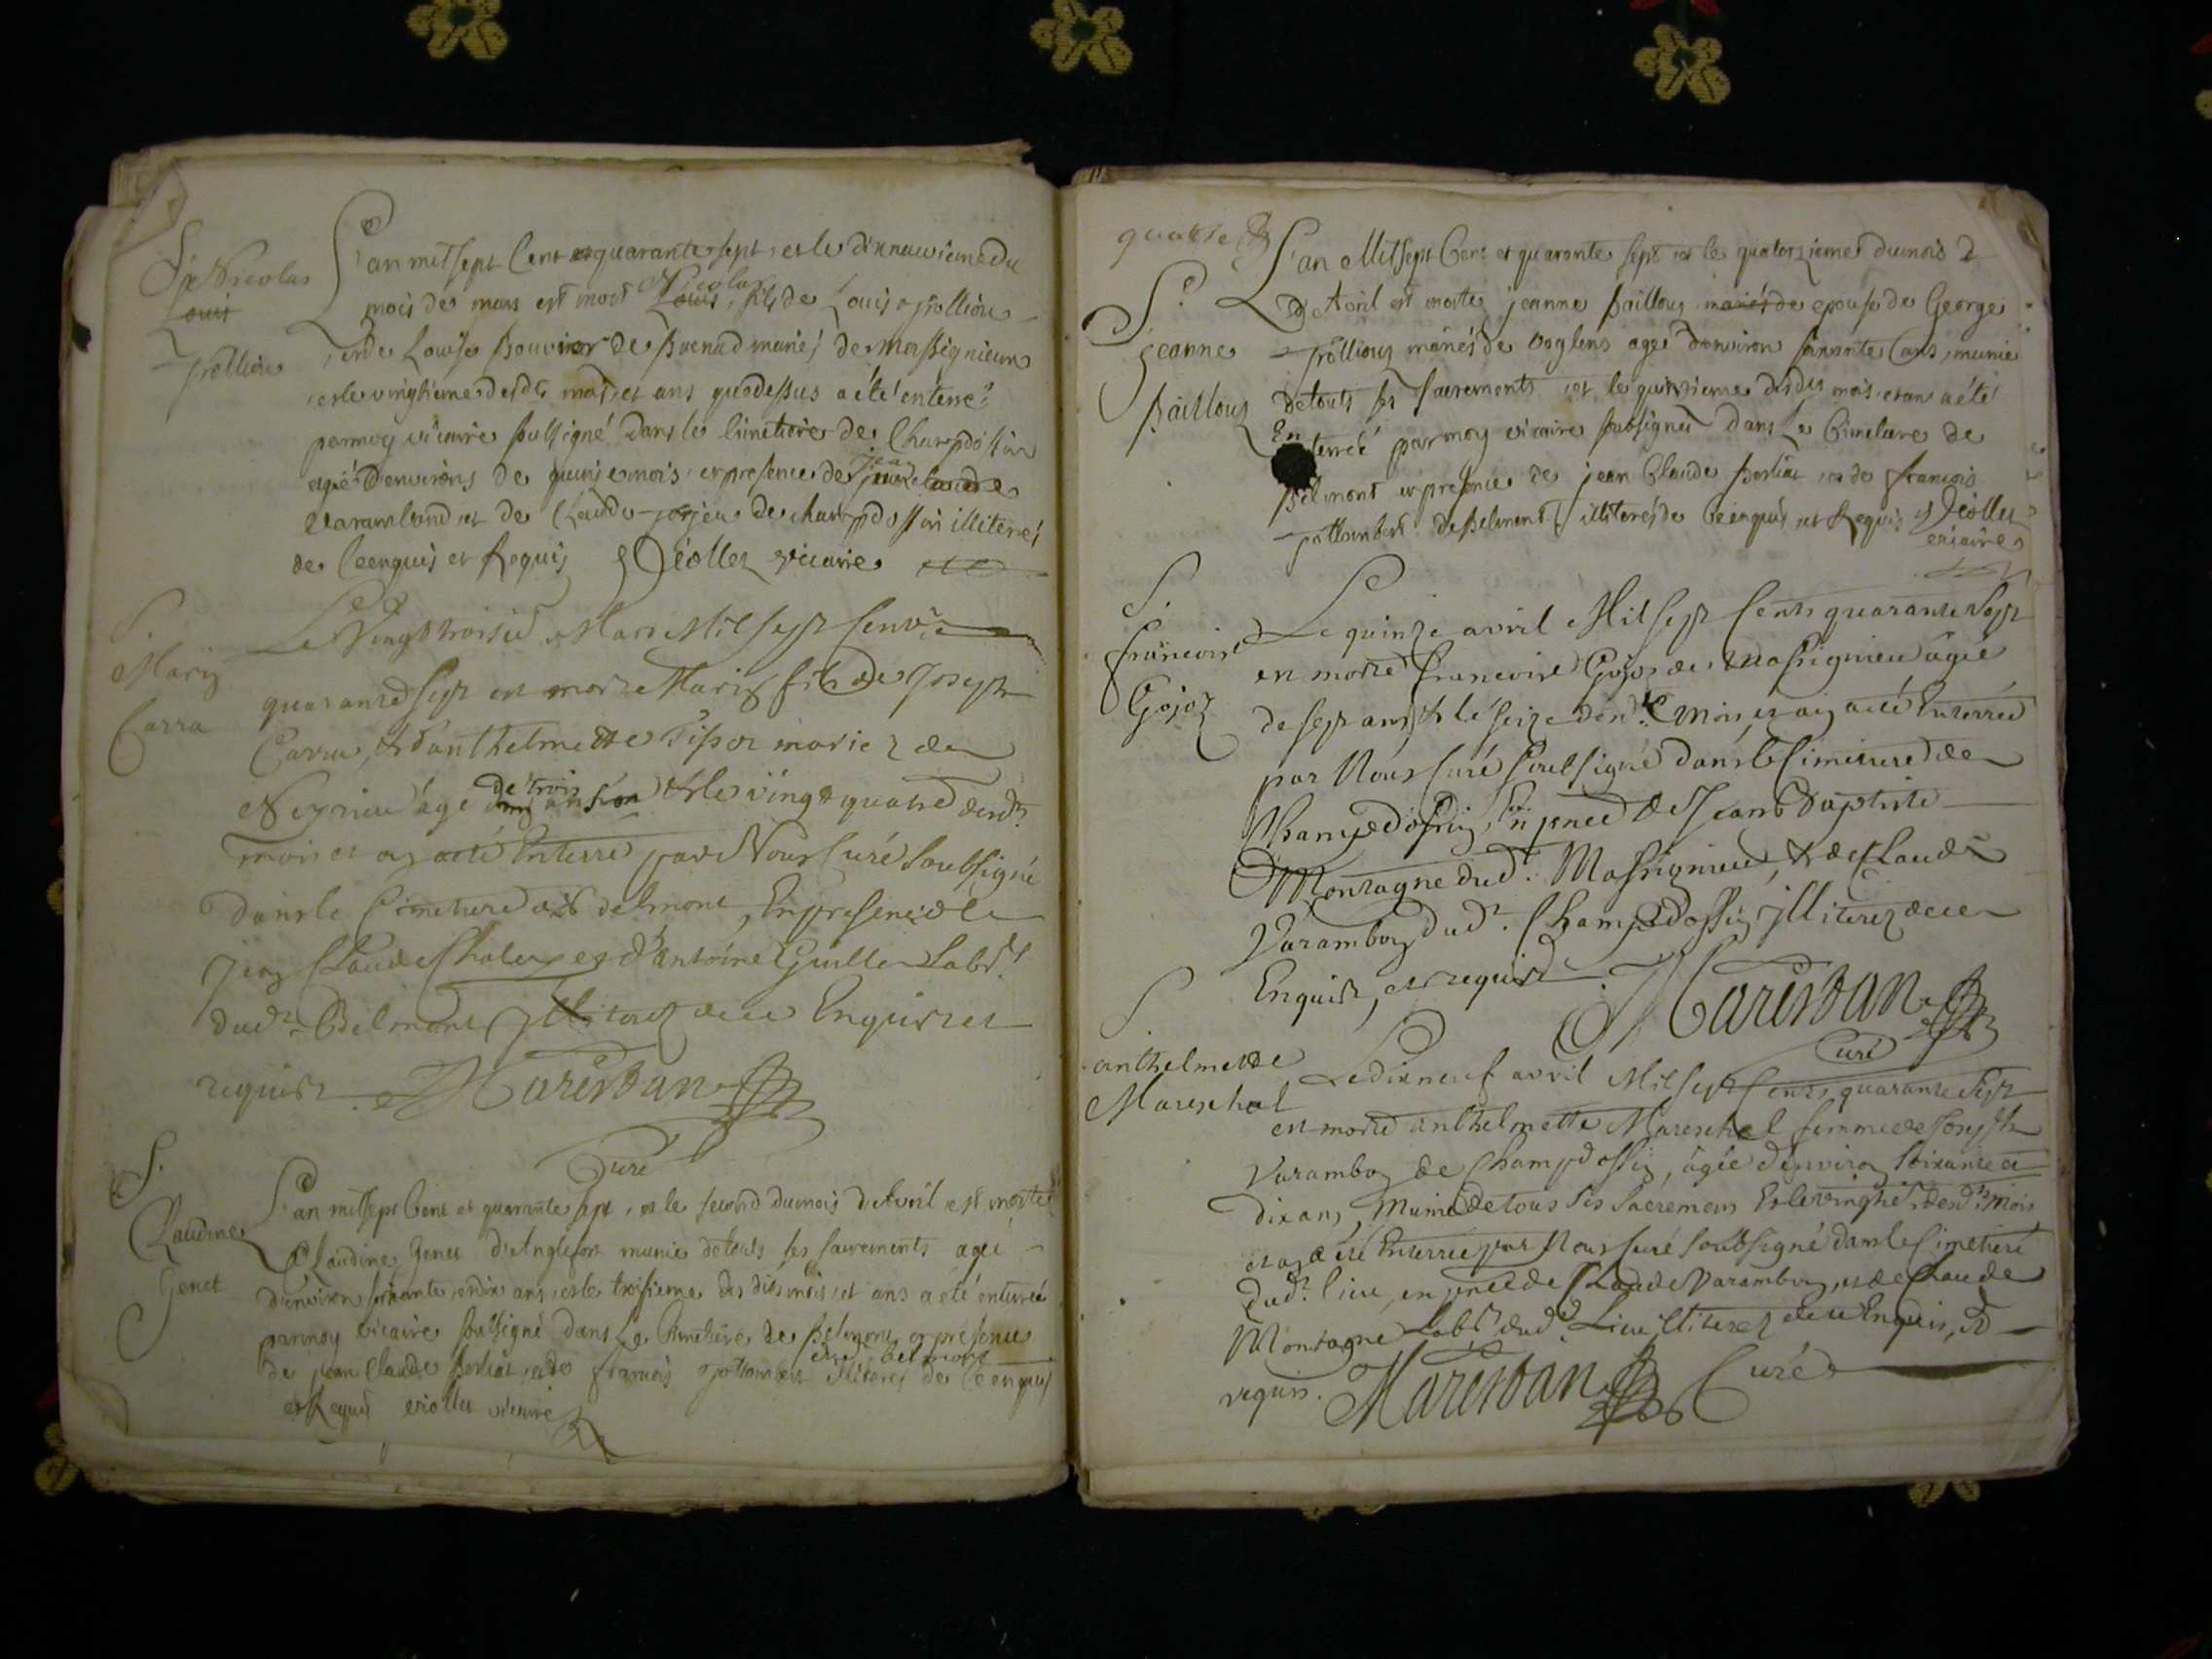 Sr Nicolas
Louis
trollion
L'an mil sept Cent et quarante sept, et le dix neuvieme du
mois de mars est mort Louis Nicolas, fils de Louis trollion
et de Louise Bouvier de mariés de Massignieu
et le vingtieme desdts mois, et ans que dessus a été enterré
par moy vicaire soussigné Dans le Cimetiere de Champdossin
agé d'environs de quinse mois, en presence de jean claude
Varambond et de Claude de champdossin illiterés
de Ceenquis et Requis Déollez vicaire
S.
Mariz
Carra
Le Vingt troisie Mars Mil sept Cent
quarante sept est mort Mariz fils de Joseph
Carra, et d'anthelmette Tissot mariez de
Neyrieu âgé de trois ans et le vingt quatre desdts
mois et an a été Enterré par Nous Curé Soubsigné
dans le Cimetiere de Belmont, En presence de
Jean Claude Chaley et d'antoine Guillen Labrs
dudt Belmont Illiterez de ce Enquis et
requis. Marestan
Curé
S.
Claudine
Genet
L'an mil sept Cent et quarante sept, et le second du mois d'Avril est morte
Claudine Genet d'Anglefort munie de touts ses sacrements agée
d'environ soixante et dix ans, et le troisieme des dits mois, et ans a été enterrée
par moy vicaire soussigné dans Le Cimetiere de Belmont en presence
de jean Claude Berliat, et de francois jottambert dud. belmont illiterés de Ceenquis
et Requis Déollet vicaire
quatre
Se
jeanne
Baillouz
L'an Mil sept Cent et quarante sept et le quatorzieme du mois d
d'Avril est morte jeanne Baillouz mariés de epouse de George
trolliouz mariés de voglens agé d'environ soixante ans, munie
de touts ses sacrements et le quinzieme desdts mois et ans a été
Enterrée par moy vicaire soubsigné dans Le Cimetiere de
Belmont en presence de jean Claude Berliat et de francois
jottambert de Belmont illiterés de Ceenquis et Requis Déollet
vicaire
S.
francoise
Gojoz
Le quinze avril Mil sept Cents quarante sept
est morte francoise Gojoz de Massignieu âgée
de sept ans, & le seize desdts mois, et an a été Enterrée
par Nous Curé Soubsigné dans le Cimetiere de
Champdossin, En pnce de Jean Baptiste
Montagne dudt Massignieu, & de Claude
Varamboz dudt Champdossin illiterez de ce
Enquis, et requis. Marestan
Curé
S.
anthelmette
Mareschal
Le dix neuf avril Mil sept Cents quarante sept
est morte anthelmette Mareschal femme de Joseph
Varamboz de Champdossin, âgée d'environ soixante et
dix ans, Munie de tous ses sacremens Et le vingtie desdts mois
et an a été Enterrée par Nous Curé Soubsigné dans le Cimetiere
dudt lieu, en pnce de Claude Varamboz, et de Claude
Montagne Labrs dudt Lieu illiterez de ce Enquis, et
requis. Marestan Curé